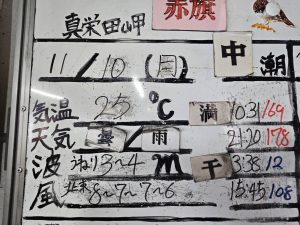 真栄田岬 赤旗
11/10(月) 中潮
気温 25℃ 満 10:31/169
天気 曇/雨 21:20/178
波 うねり3~4m 干 3:38/12
風 北東8~7~7~6 15:45/108